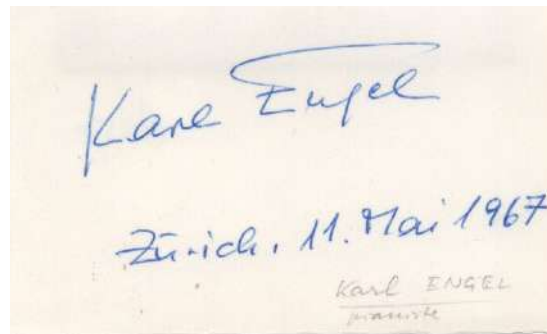 Karl Engel
Zürich, 11. Mai 1967
Karl ENGEL
pianiste